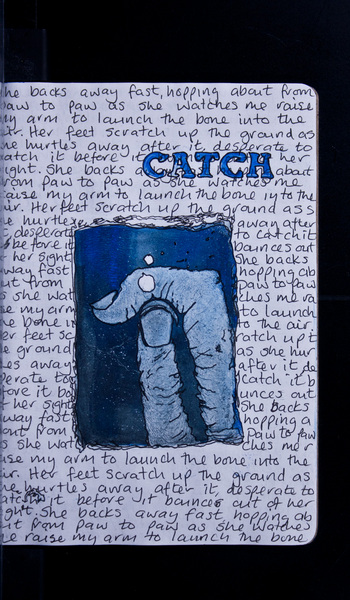 he backs away fast, hopping about from
paw to paw as she watches me raise
my arm to launch the bone into the
air. Her feet scratch up the ground as
he hurtles away after it, desperate to
catch it before it CATCH her
ight. She backs about
rom paw to paw as she watches me
raise my arm to launch the bone into the
air. Her feet scratch up the ground as s
he hurtles away after
, desperate to catch it
before it bounces out
her sight she backs
way fast hopping ab
ut from paw to paw
s she wat ches me ra
se my arm to launch
he bone in to the air.
er feet sc ratch up t
e ground as she hur
les away after it, de
perate to catch it b
fore it bo unces out
her sight She backs
way fast hopping a
out from paw to paw
s she wat ches me r
ise my arm to launch the bone into the
air. Her feet scratch up the ground as
he hurtles away after it, desperate to
atch it before it bounces out of her
ight. She backs away fast, hopping ab
ut from paw to paw as she watches
e raise my arm to launch the bone